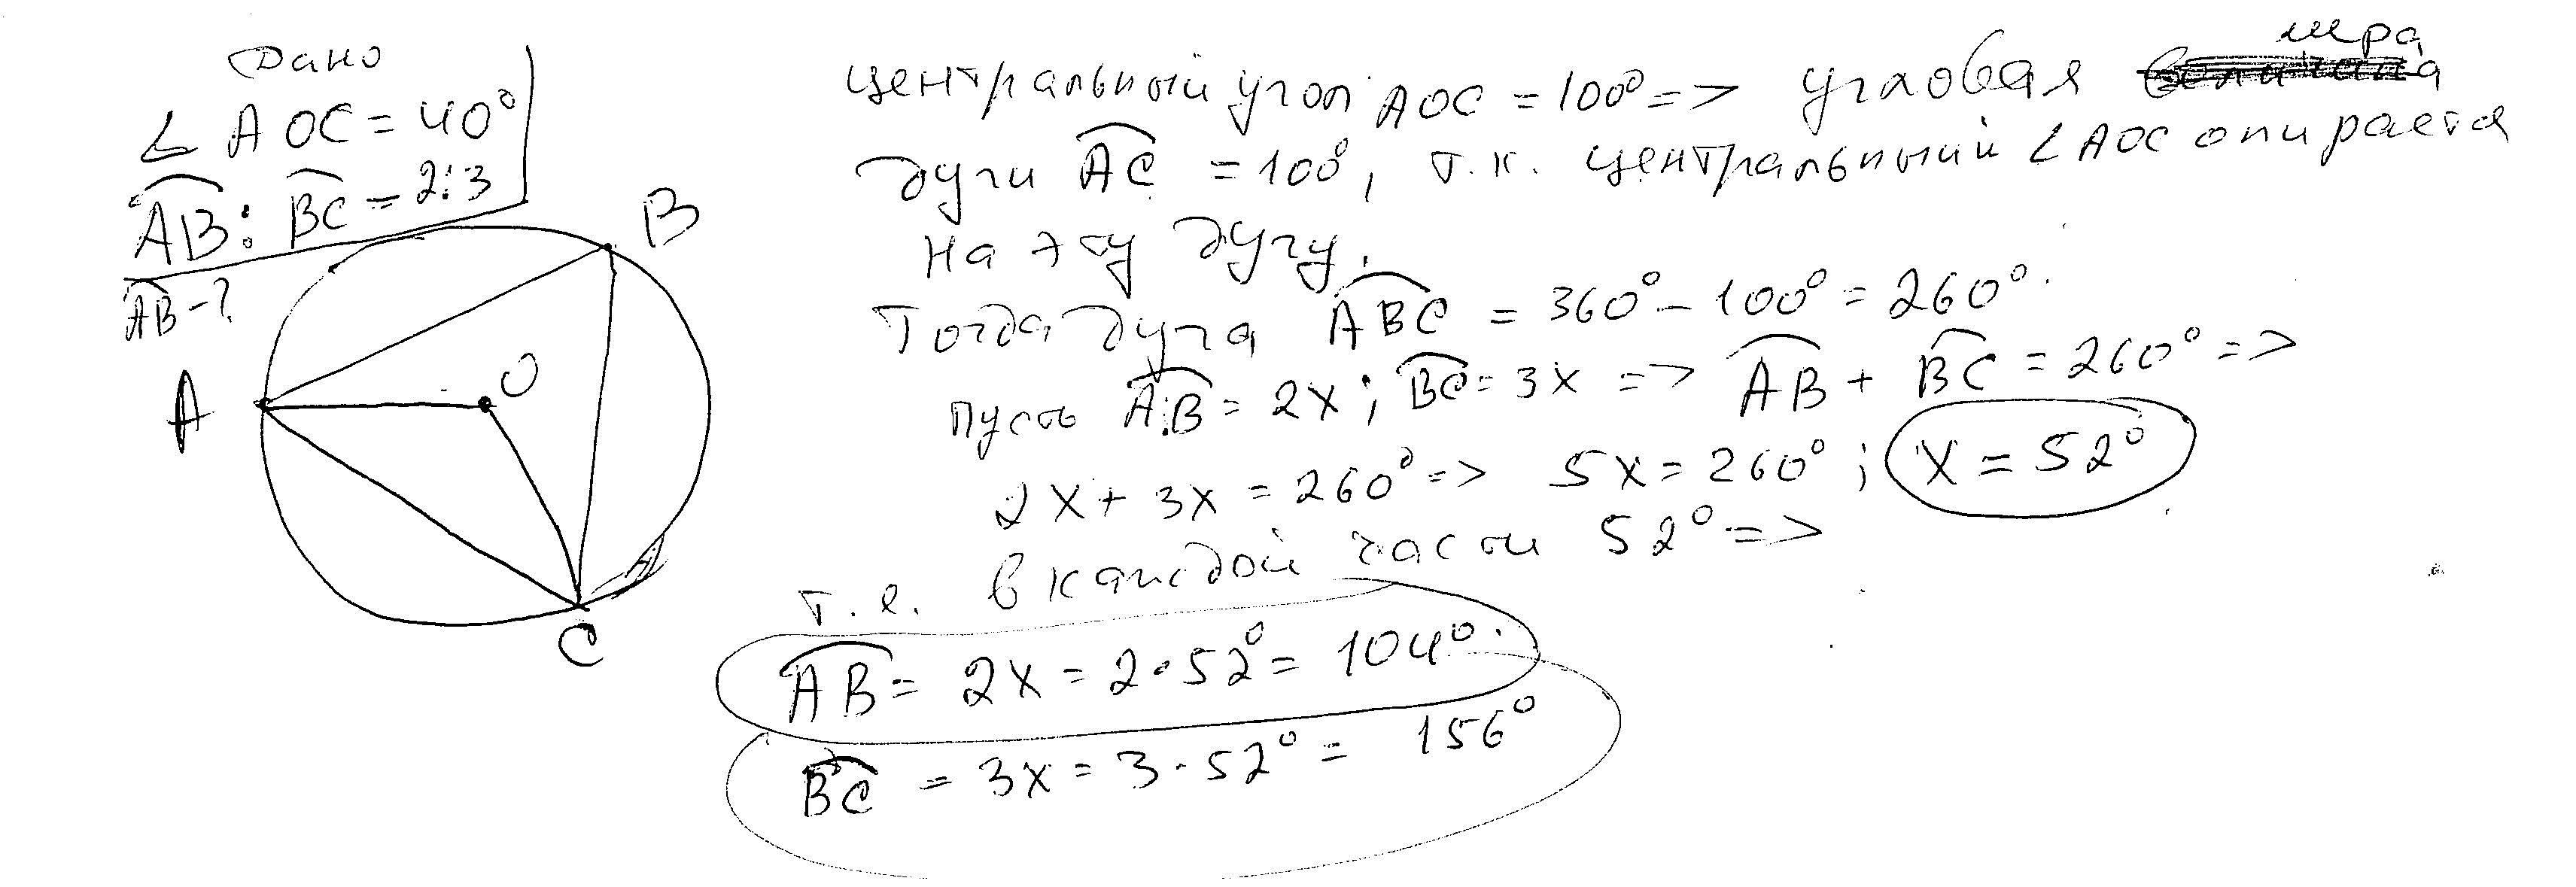 Дано
∠ AOC = 40°
AB : BC = 2:3
AB - ?
B
A
O
C
Центральный угол AOC = 100° => угловая мера
дуги AC = 100°, т.к. центральный ∠ AOC опирается
на эту дугу.
Тогда дуга ABC = 360° - 100° = 260°.
Пусть AB = 2x; BC = 3x => AB + BC = 260° =>
2x + 3x = 260° => 5x = 260°; x = 52°
т.е. в каждой части 52° =>
AB = 2x = 2·52° = 104°.
BC = 3x = 3·52° = 156°